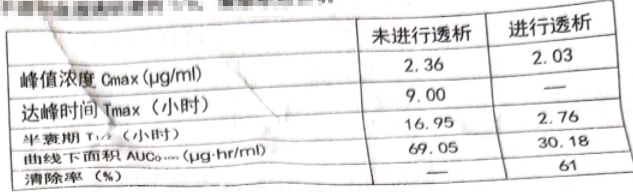 未进行透析 进行透析
峰值浓度 Cmax (μg/ml) 2.36 2.03
达峰时间 Tmax (小时) 9.00 —
半衰期 T₁/₂ (小时) 16.95 2.76
曲线下面积 AUC (μg·hr/ml) 69.05 30.18
清除率 (%) — 61